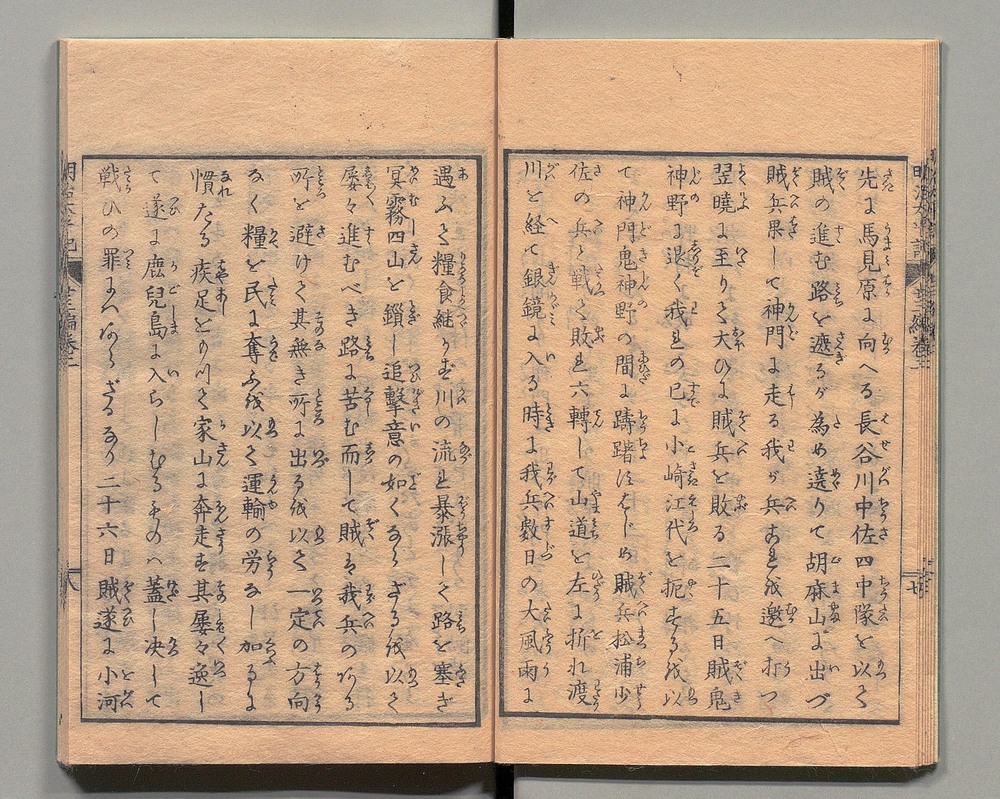 先に馬見原に向へる長谷川中佐四中隊を以て
賊の進む路を遮るが為め遶りて胡麻山に出づ
賊兵果して神門に走る我が兵これを邀へ打つ
翌曉に至りて大ひに賊兵を敗る二十五日賊鬼
神野に退く我兵の已に小崎江代を扼するを以
て神門鬼神野の間に躊躇す
賊兵松浦少
佐の兵と戦て敗れ六轉して山道を左に折れ渡
川を経て銀鏡に入る時に我兵数日の大風雨に
遇ふて糧食継がず川の流れ暴漲して路を塞ぎ
冥霧四山を鎖し追撃意の如くならざるを以て
屡々進むべき路に苦む而して賊は我兵の
所を避けて其無き所に出るを以て一定の方向
なく糧を民に奪ふを以て運輸の労なし加るに
慣たる疾足をもつて家山に奔走す其屡々逸し
て遂に鹿児島に入らしむるものハ蓋し決して
戦ひの罪にハあらざるなり二十六日賊遂に小河
明治太平記
七
八